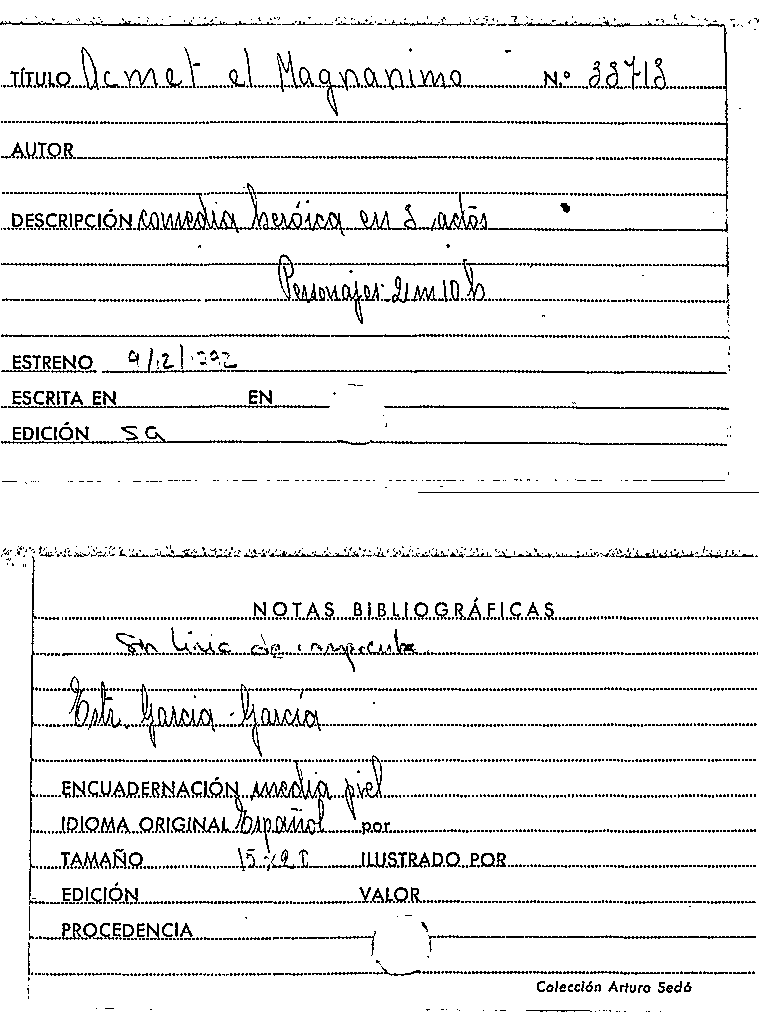 TÍTULO Acmet el Magnanimo N.º 33713
AUTOR
DESCRIPCIÓN comedia heróica en 3 actos
Personajes: 2 m 10 h
ESTRENO 9/12/1792
ESCRITA EN EN
EDICIÓN SA
NOTAS BIBLIOGRÁFICAS
Sin de imprenta
Estr. Garcia - García
ENCUADERNACIÓN media piel
IDIOMA ORIGINAL Español por
TAMAÑO 15 ILUSTRADO POR
EDICIÓN VALOR
PROCEDENCIA
Colección Arturo Sedó